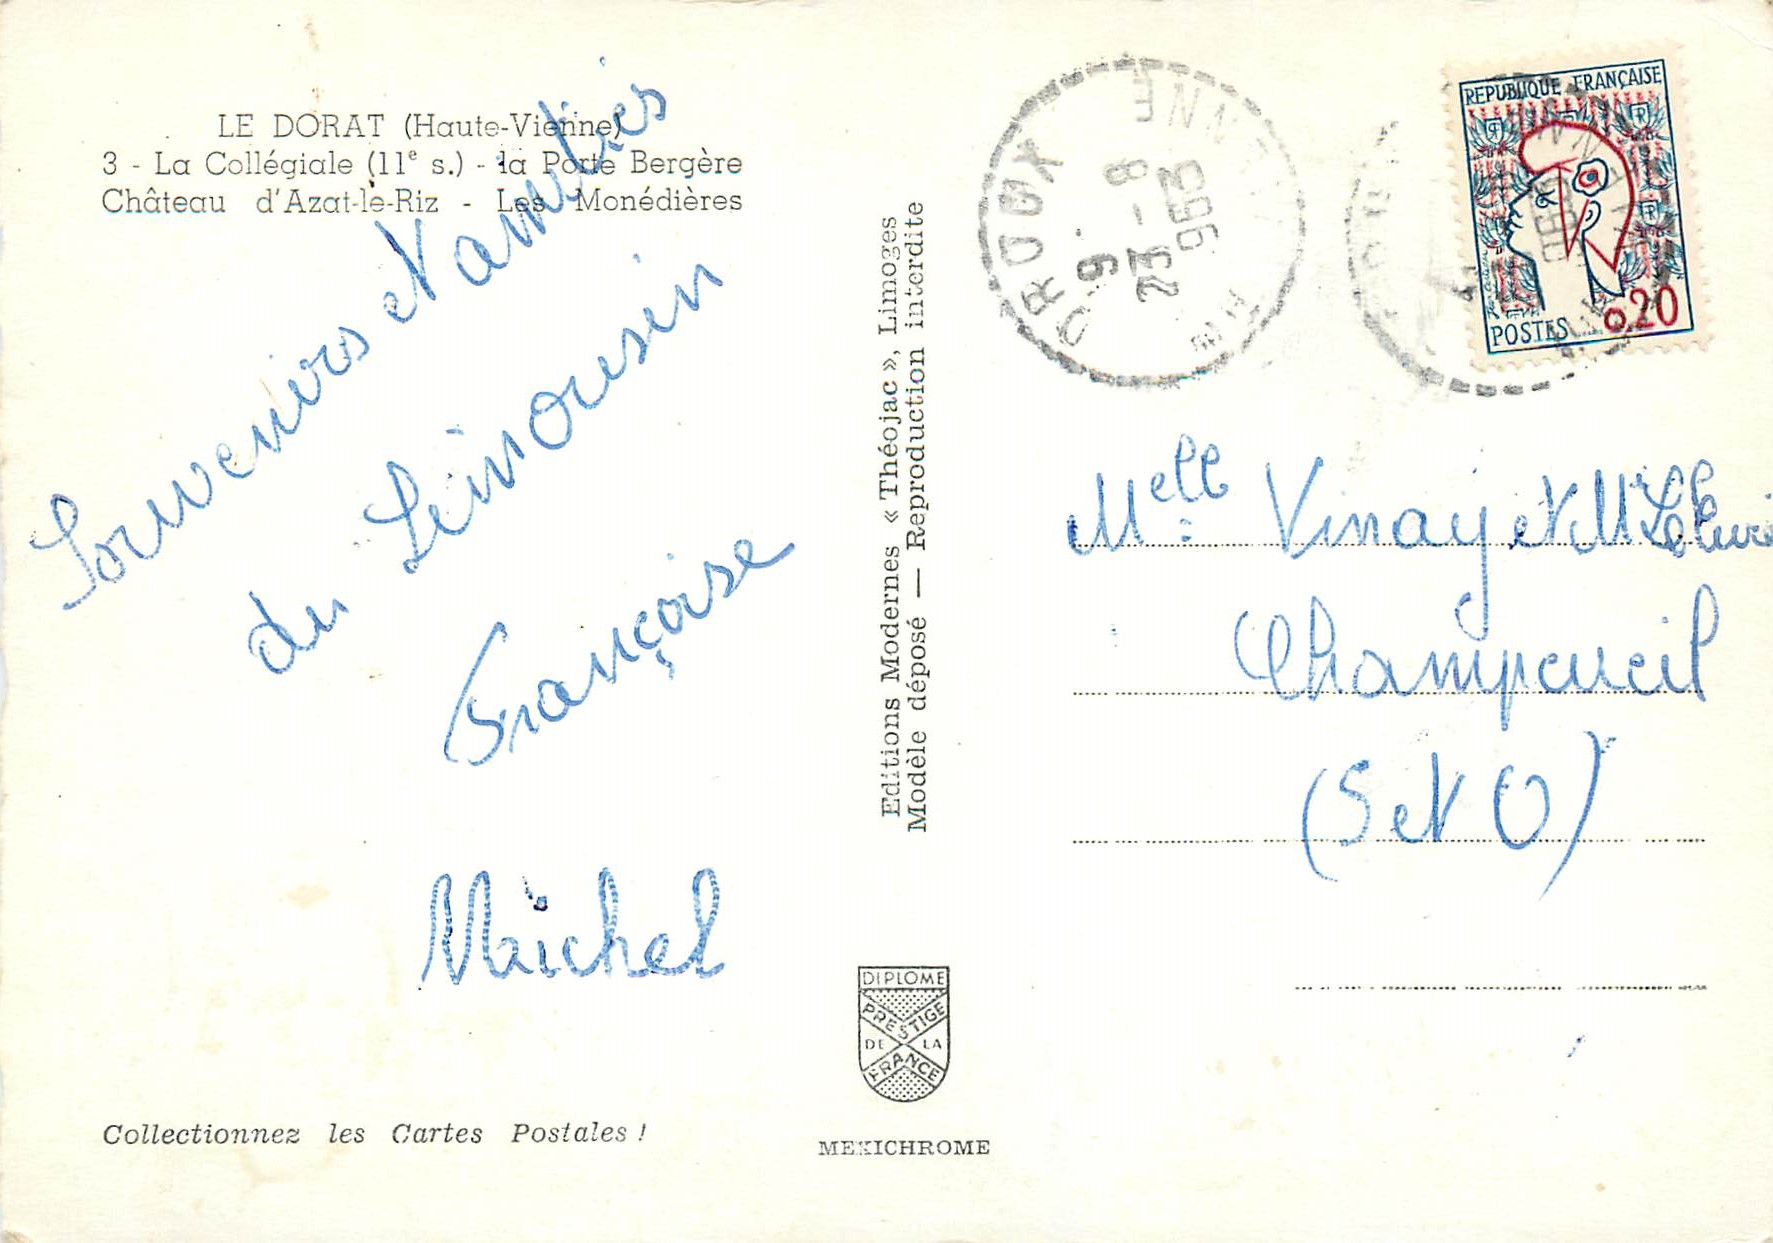 LE DORAT (Haute-Vienne)
3 - La Collégiale (11e s.) - la Porte Bergère
Château d'Azat-le-Riz - Les Monédières
Souvenirs et amitiés
du Limousin
Françoise
Michel
Collectionnez les Cartes Postales !
Editions Modernes « Théojac », Limoges
Modèle déposé — Reproduction interdite
DIPLOME
PRESTIGE
DE LA
FRANCE
MEXICHROME
DROUX
REPUBLIQUE FRANÇAISE
POSTES 0,20
Melle Vinay et M
Champcueil
(S et O)